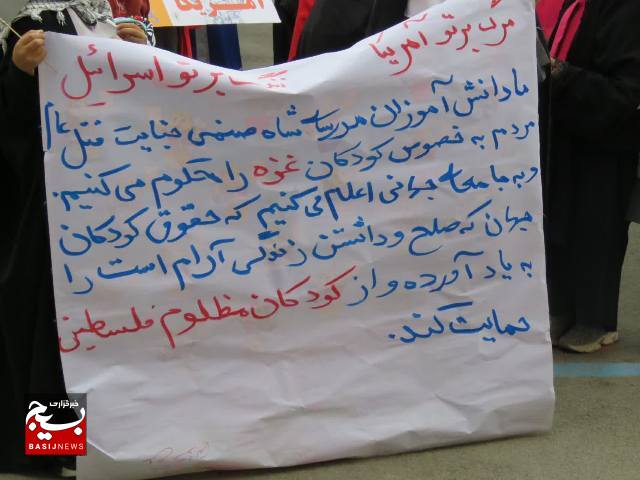 آمریکا
مرگ بر تو آمریکا
ننگ بر تو اسرائیل
ما دانش آموزان مدرسه شاه صنمی جنایت قتل عام
مردم به خصوص کودکان غزه را محکوم می کنیم.
و به جامعه جهانی اعلام می کنیم که حقوق کودکان
جهان که صلح و داشتن زندگی آرام است را
به یاد آورده و از کودکان مظلوم فلسطین
حمایت کند.
خبرگزاری
بسیج
BASIJNEWS